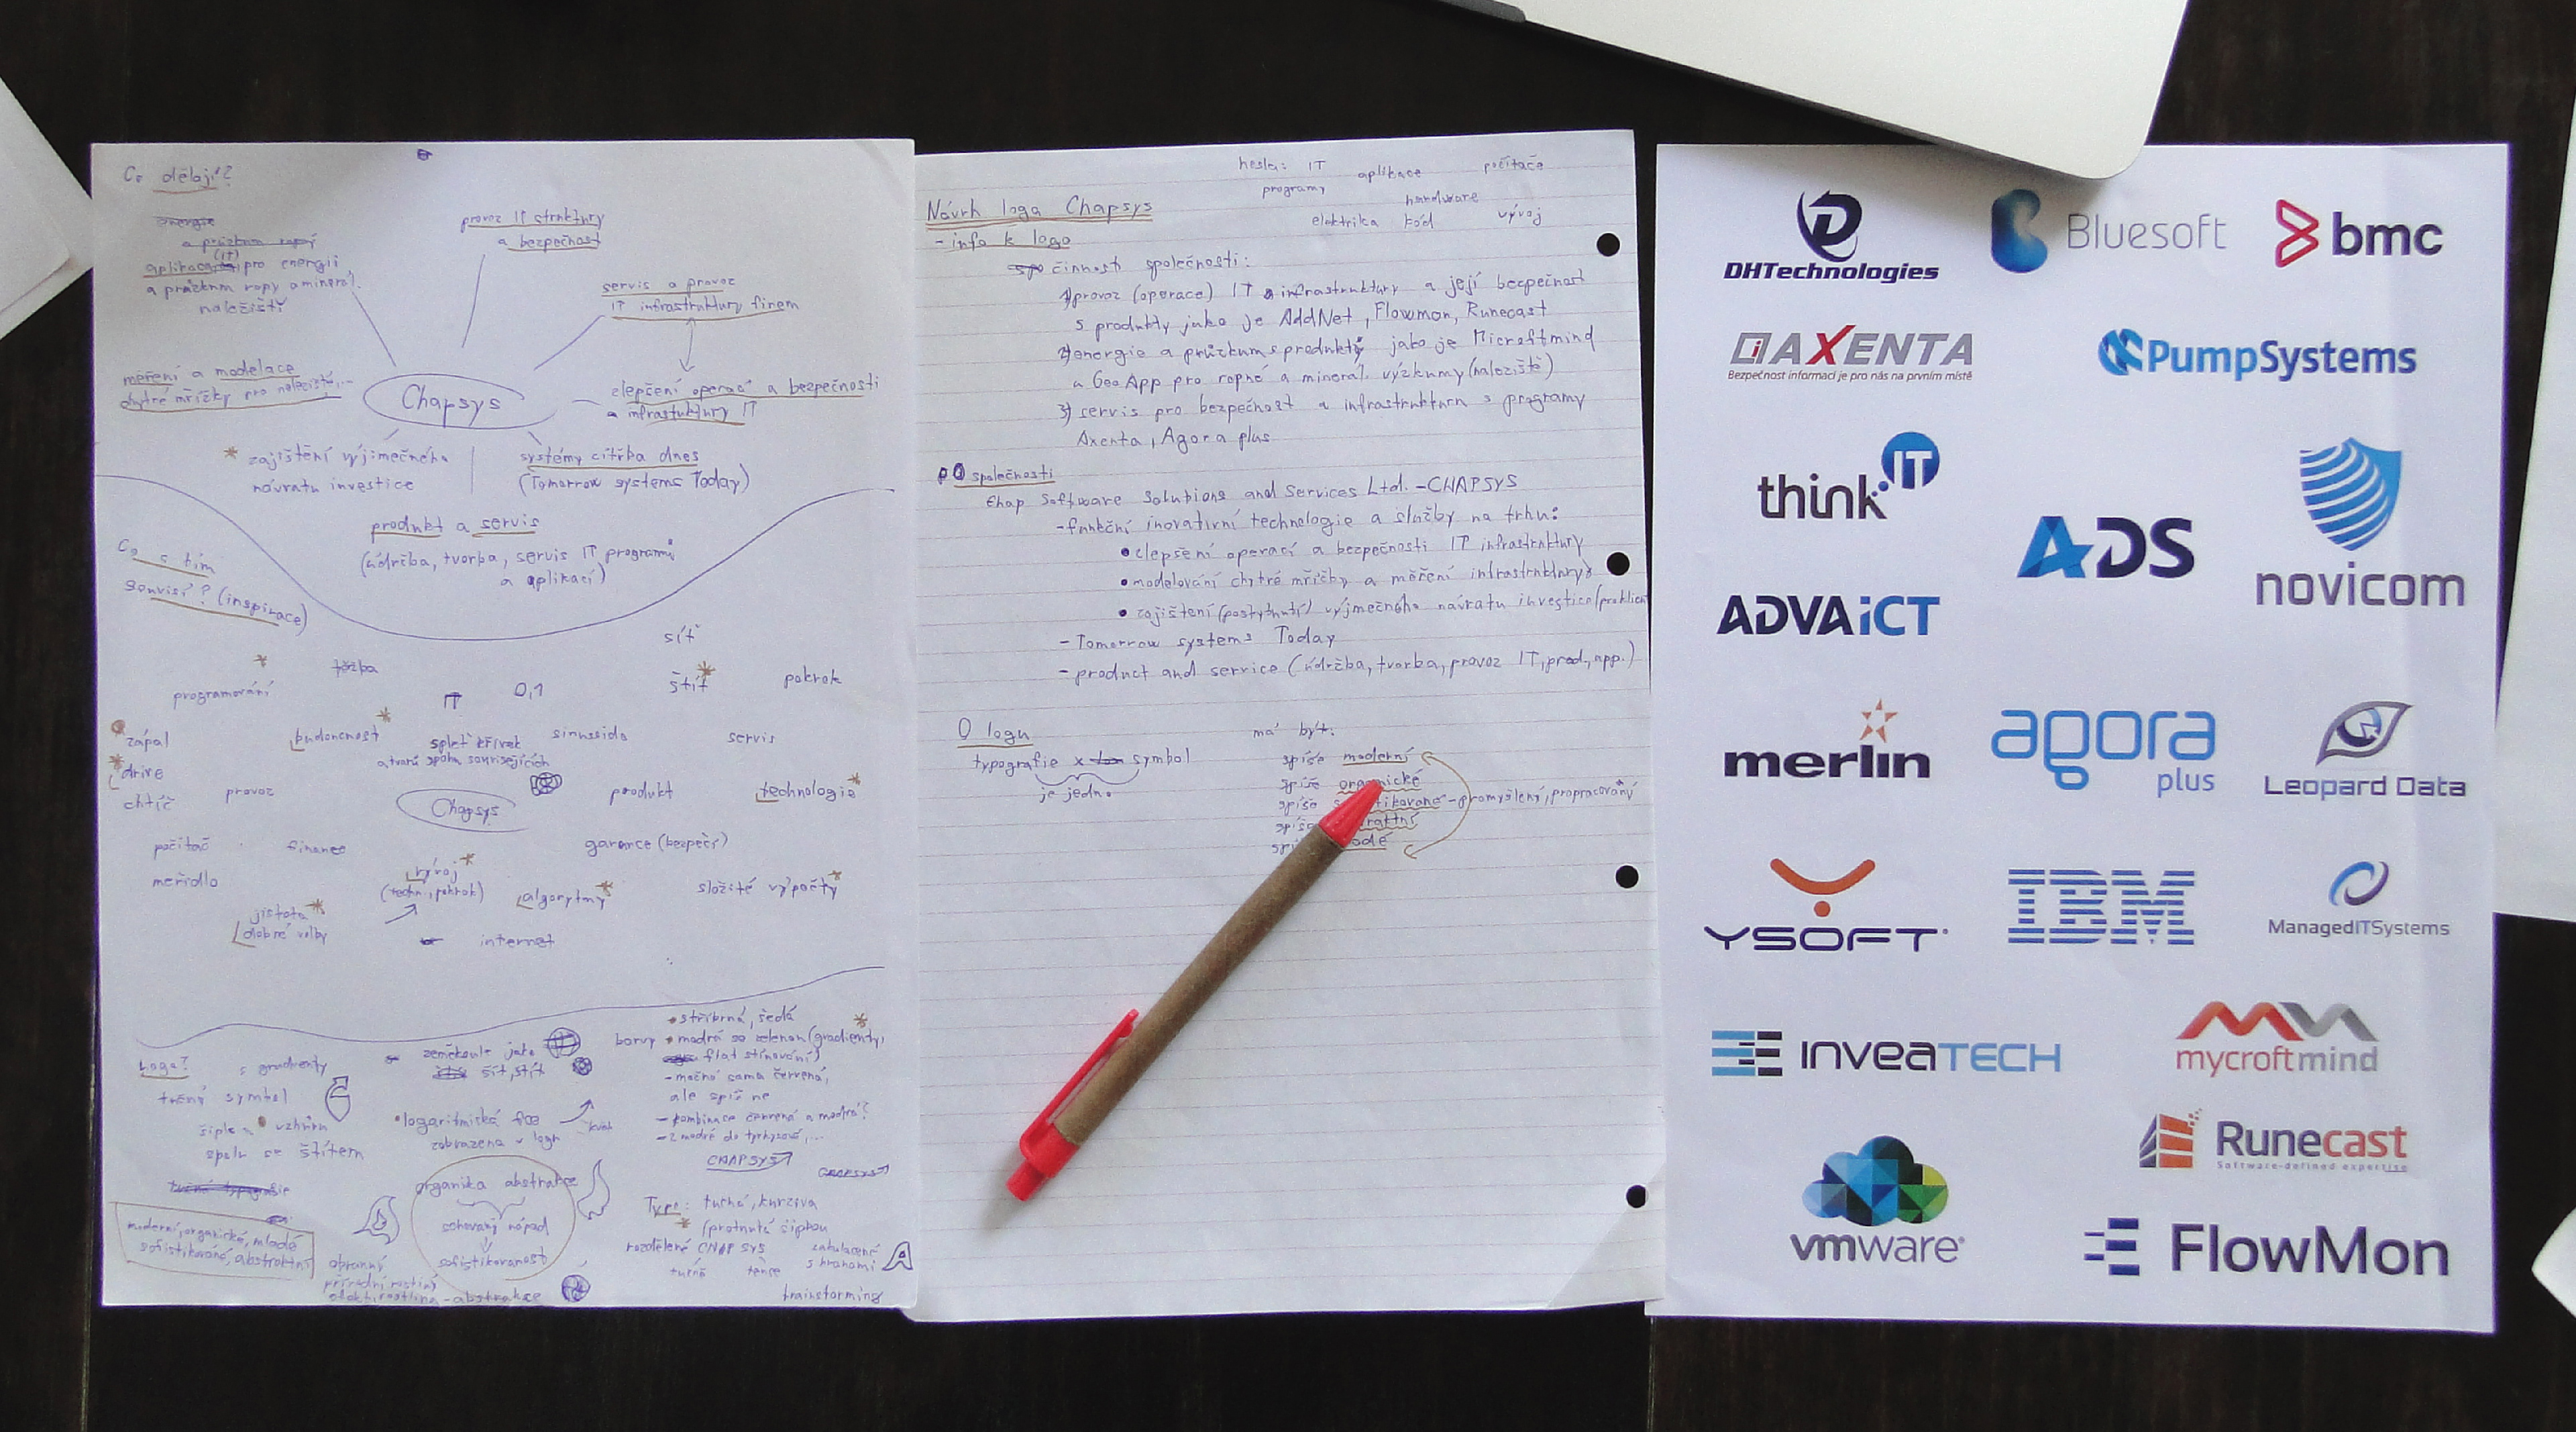 Co dělají?
provoz IT struktury
a bezpečnost
pro energii
a průzkum ropy a minerál.
nalezišť
servis a provoz
IT infrastruktury firem
měření a modelace
chytré mřížky pro naleziště,...
Chapsys
zlepčení operací a bezpečnosti
a infrastuktury IT
* zajištění vyjímečného
návratu investice
systémy cítřka dnes
(Tomorrow systems Today)
produkt a servis
(údržba, tvorba, servis IT programů
a aplikací)
Co s tím
souvisí? (inspirace)
síť
programování
těžba
IT
0,1
štít
pokrok
zápal
budoucnost
spleť křivek
sinusoida
servis
drive
chtíč
provoz
Chapsys
produkt
technologie
počítač
finance
garance (bezpečí)
meřidlo
vývoj
(techn., pokrok)
algorytmy
složité výpočty
jistota
dobré volby
internet
Loga?
s gradienty
zeměkoule jako
síť, štít
barvy
stříbrná, šedá
modrá se zelenou (gradienty,
flat stínování)
- možná sama červená,
ale spíš ne
- kombinace červená a modrá?
- z modré do tyrkysové,...
tučný symbol
šipka vzhůru
spolu se štítem
logaritmická
zobrazena v logu
CHAPSYS
CHAPSYS
organika abstrakce
schovaný nápad
sofistikovanost
Type: tučná, kurzíva
(protnutá šipkou
rozdělené CHAP SYS
tučně tence
zakulacené
s hranami
A
moderní, organické, mladé
sofistikované, abstraktní
přírodní rostliny
- abstrakce
brainstorming
hesla: IT
programy
aplikace
počítače
hardware
elektrika
kód
vývoj
Návrh loga Chapsys
- info k logo
činnost společnosti:
1) provoz (operace) IT infrastruktury a její bezpečnost
s produkty jako je AddNet, Flowmon, Runecast
2) energie a průzkum s produkty jako je Micreftmind
a GeoApp pro ropné a minerál. výzkumy (naleziště)
3) servis pro bezpečnost a infrastrukturu s programy
Axenta, Agora plus
O společnosti
Chap Software Solutions and Services Ltd. - CHAPSYS
- funkční inovativní technologie a služby na trhu:
• zlepšení operací a bezpečnosti IT infrastruktury
• modelování chytré mřížky a měření infrastruktury
• zajištění (poskytnutí) výjmečného návratu investice
- Tomorrow systems Today
- product and service (údržba, tvorba, provoz IT, prod., app.)
O logu
typografie x symbol
je jedno
má být:
spíše moderní
spíše organické
spíše - promyšlený, propracovaný
spíše
DHTechnologies
Bluesoft
bmc
AXENTA
Bezpečnost informací je pro nás na prvním místě
PumpSystems
think IT
ADS
novicom
ADVAiCT
merlin
agora
plus
Leopard Data
YSOFT
IBM
ManagedITSystems
INVEATECH
mycroftmind
Runecast
Software-defined expertise
vmware
FlowMon